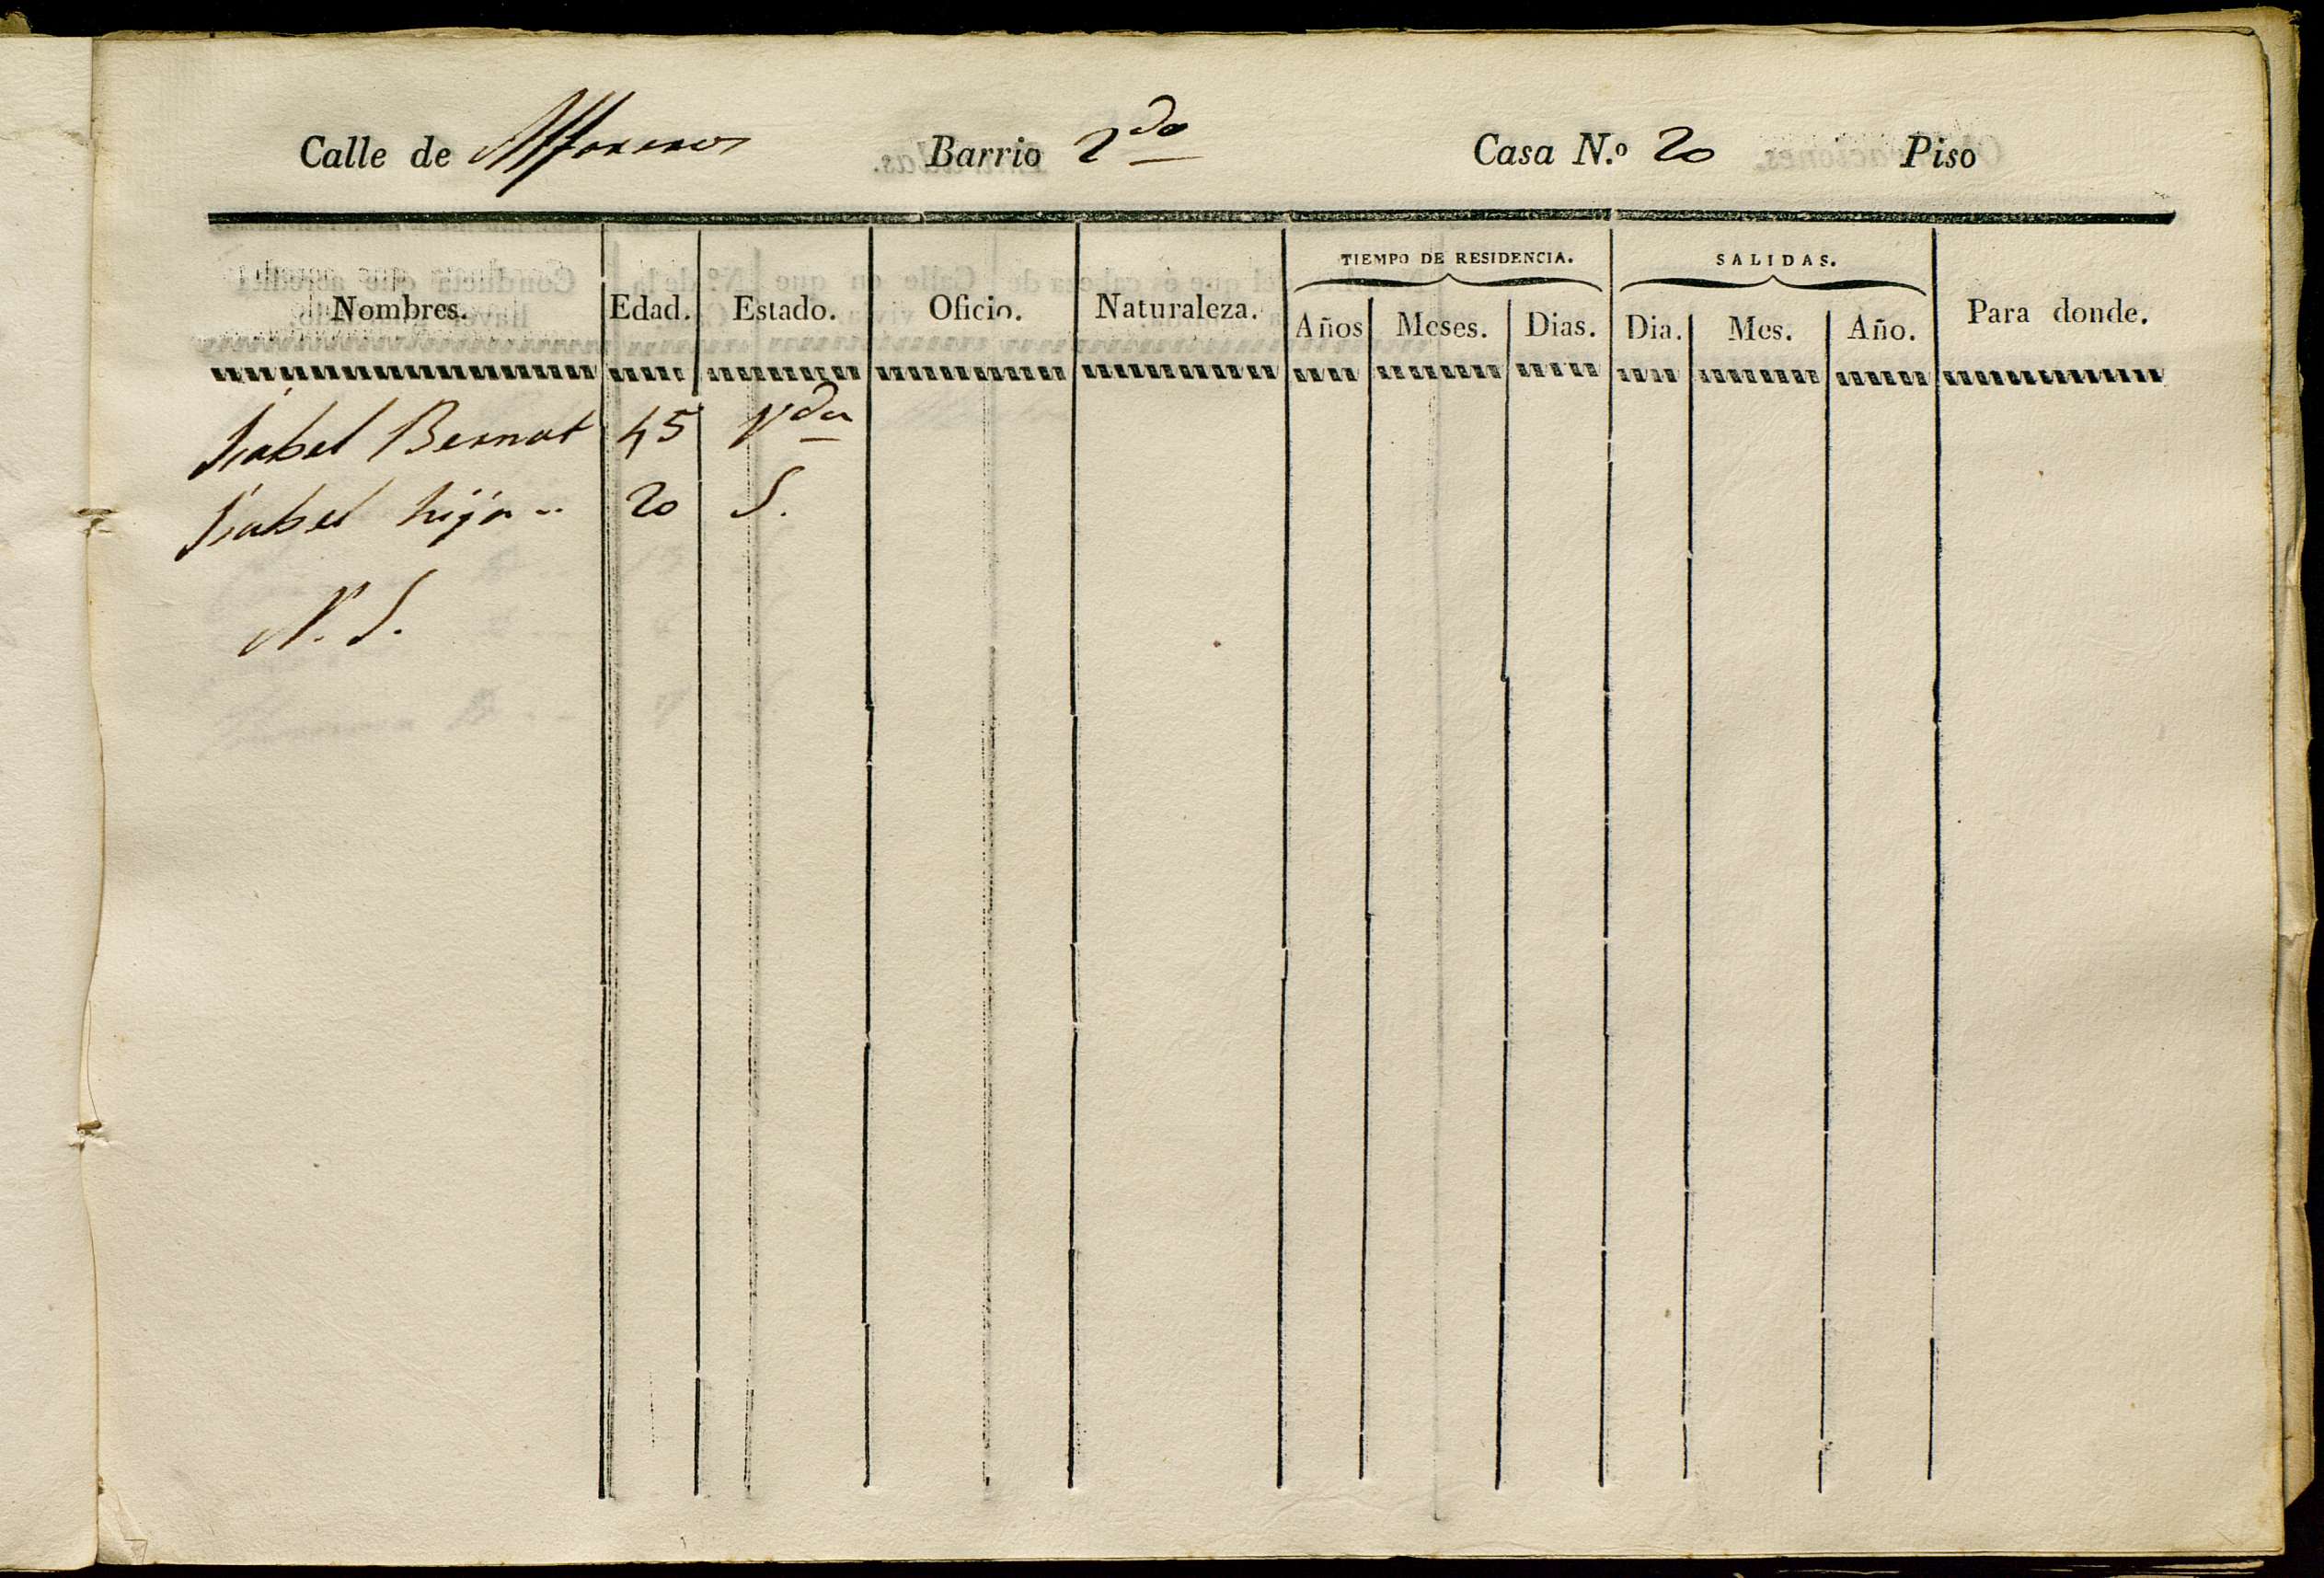 Calle de Alfareros Barrio 2do Casa N.o 20 Piso
TIEMPO DE RESIDENCIA. SALIDAS.
Nombres. Edad. Estado. Oficio. Naturaleza. Años Meses. Dias. Dia. Mes. Año. Para donde.
Isabel Bernat 45 Vda
Isabel hija 20 S.
N. S.